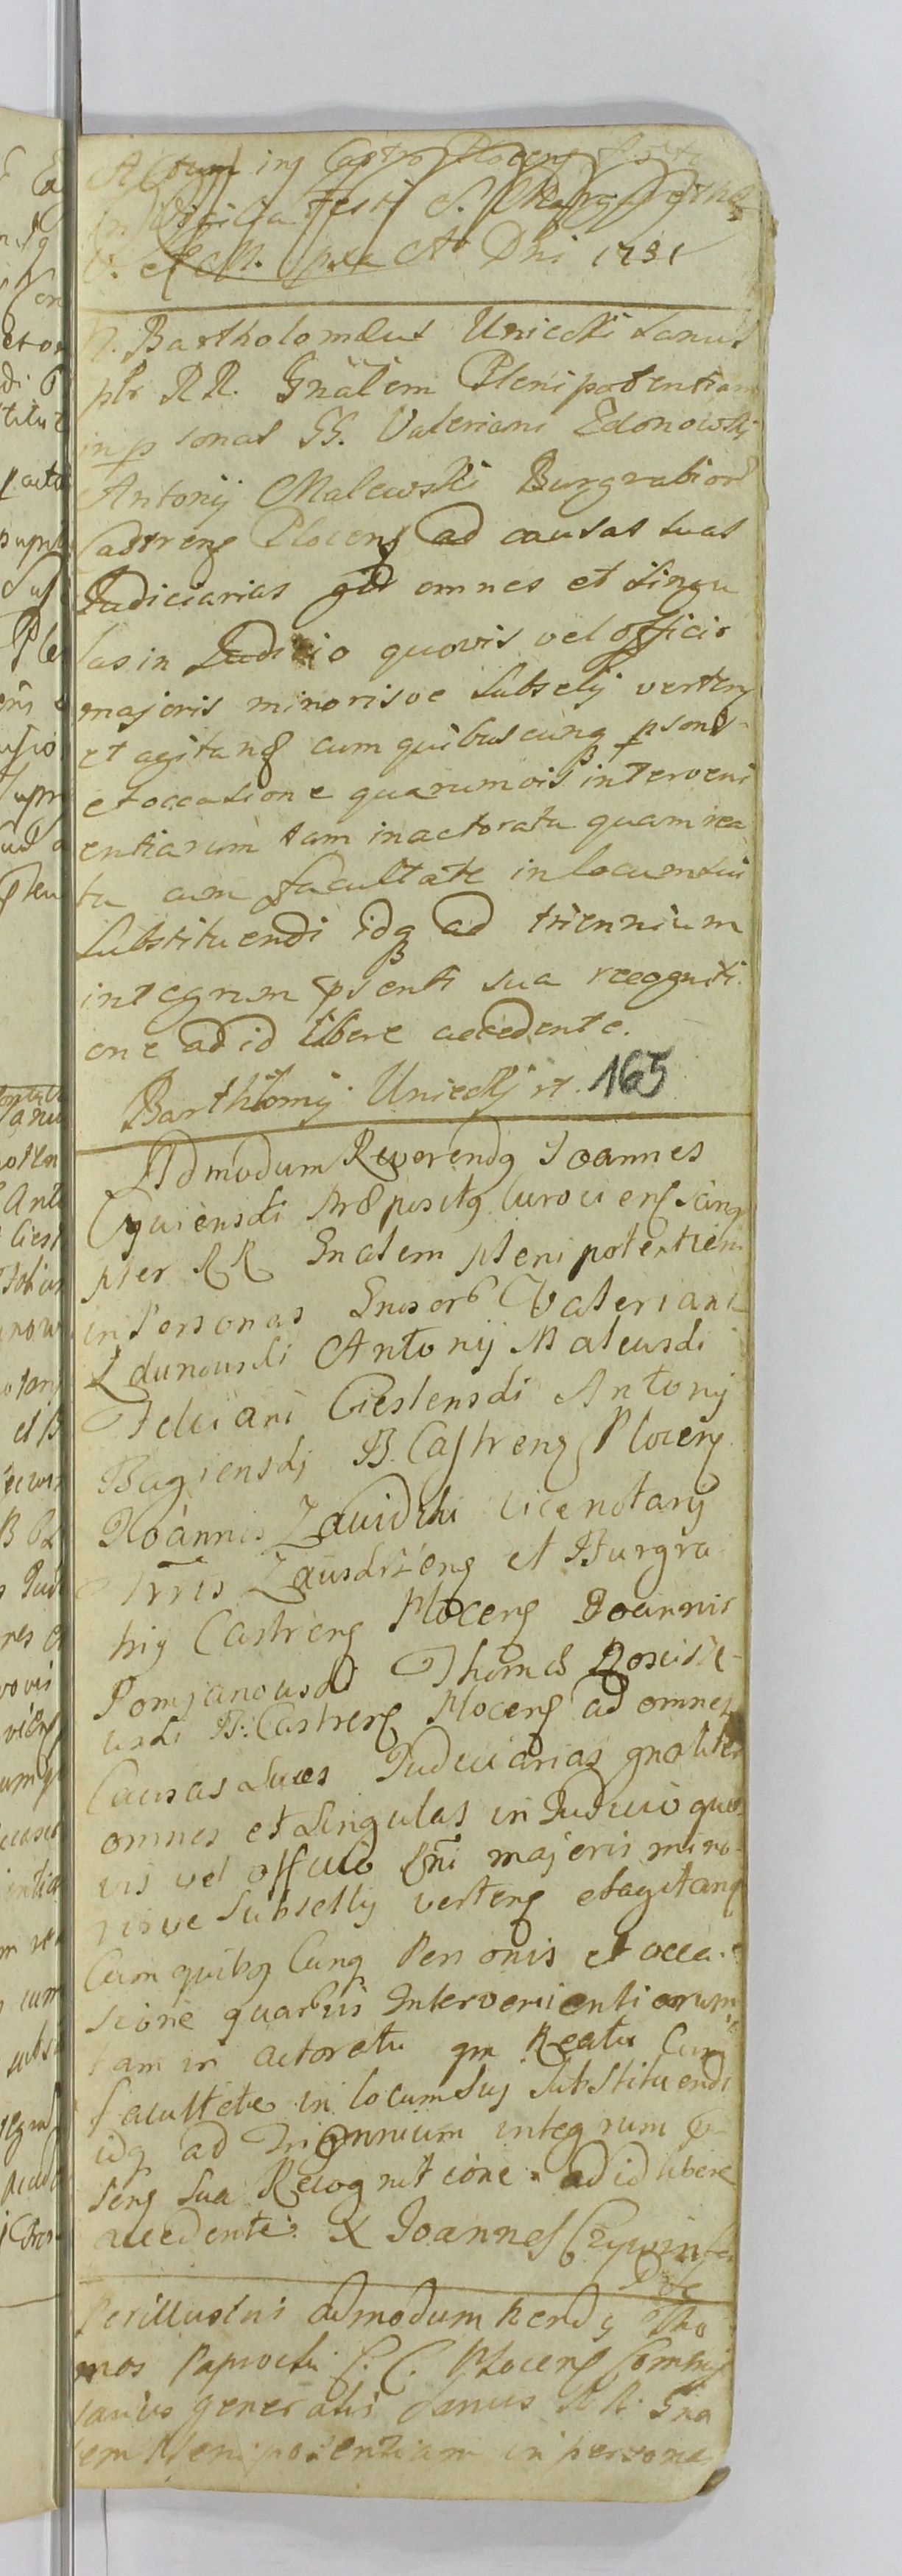 Actum in Castro Plocens
in Vigilia Festi S. Margarethae
V. et M. Ao Dni 1731
N. Bartholomaeus Uniecki sanus
ptr RR. Gnalem Plenipotentiam
in psonas GG. Valeriani Zdonowski
Antonij Malewski Burgrabior
Castrens Plocens ad causas suas
Judiciarias gnr omnes et singu
las in Judicio quovis vel officio
majoris minorisve subselij verten
et agitans cum quibuscunq psonis
et occasione quarumvis interveni
entiarum tam in actoratu quam rea
tu cum facultate in locum sui
substituendi idq ad triennium
integrum psenti sua recogniti
one ad id libere accedente.
Barthlomij Uniecky rt. 165
Admodum Reverendq Joannes
Czywienski Praepositq
pter RR Gnalem plenipotentiam
in Personas Gnosor Valeriani
Zdunowski Antonij Malewski
Feliciani Cieslenski Antonij
B. Castrens Plocens
Joannis Zawidzki vicenotarij
Trris Zawskrzens et Burgra
bij Castrens Plocens Joannis
Pomianowski Thomae
wski B. Castrens Plocens ad omnes
Causas suas Judiciarias gnaliter
omnes et singulas in Judicio quo
vis vel officio Rni majoris mino
risve Subselly vertens et agitans
Cum quibq Cunq Personis et occa
sione quarvis Intervenientiarum
tam in actoratu qm Reatu Cum
facultate in locum Suj Substituendi
idq ad Triennium integrum p
sens sua Recognitione ad id libere
accedente. X Joannes Czywinski
Perillustris admodum Rendq Tho
mas Paprocki C. C. Plocens Commis
sarius generalis sanus RR. Gna
lem Plenipotentiam in persona